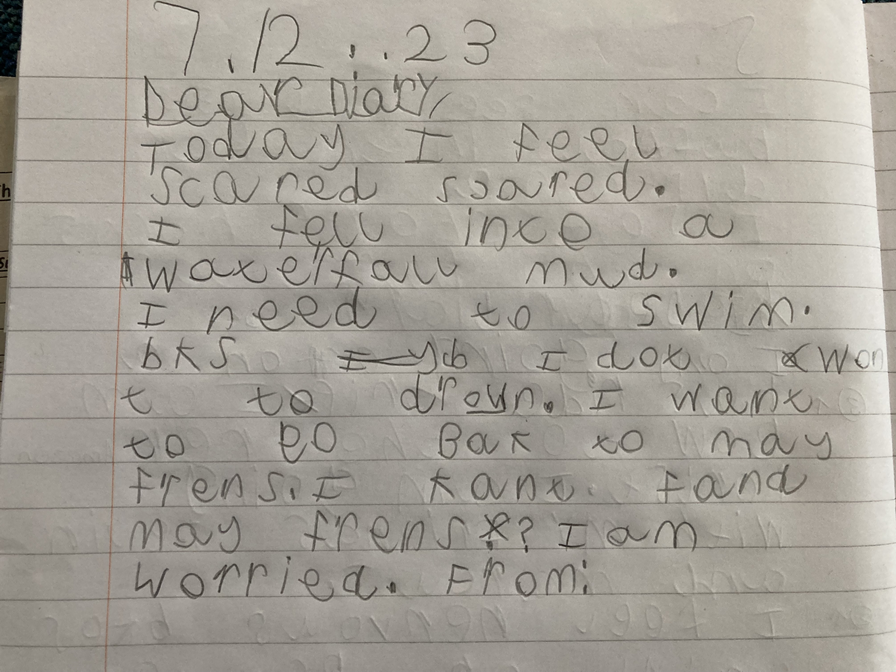 7.12..23
Dear Diary,
Today I feel
scared scared.
I fell inte a
waterfall mud.
I need to swim.
bks I dot won
t to drown. I want
to go Bak to may
frens. I kant. fand
may frens? I am
worried. From: